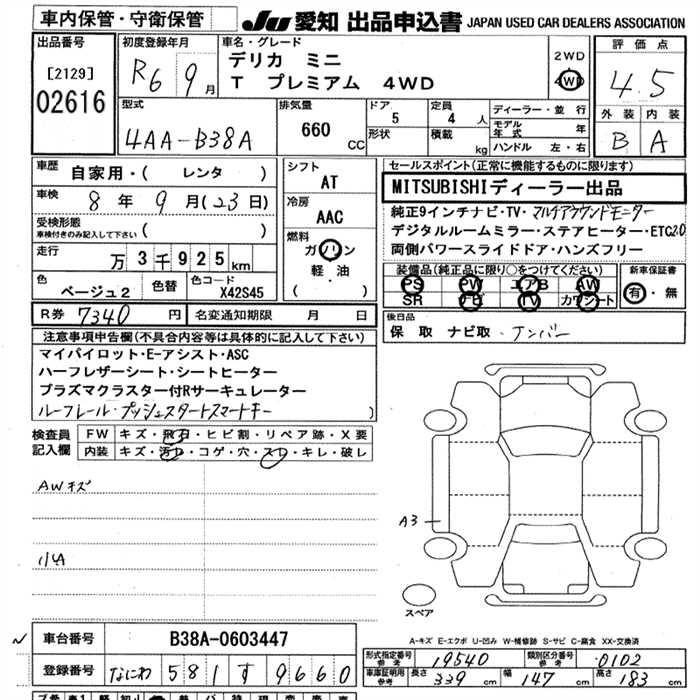 車内保管・守衛保管
JU 愛知 出品申込書 JAPAN USED CAR DEALERS ASSOCIATION
出品番号
[2129]
02616
初度登録年月
R6 9月
車名・グレード
デリカ ミニ
T プレミアム 4WD
2WD
4WD
評価点
4.5
外装 内装
B A
型式
4AA-B38A
排気量
660 cc
ドア
5
形状
定員
4 人
積載
kg
ディーラー・並行
モデル年式 年
ハンドル 左・右
車歴
自家用・( レンタ )
車検
8 年 9 月(23日)
受検形態
(車検付きのみ記入して下さい) ( )
走行
万3千925km
色
ベージュ2
色替
色コード
X42S45
シフト
AT
冷房
AAC
燃料
ガソリン
軽油
( )
セールスポイント(正常に機能するものに限ります)
MITSUBISHIディーラー出品
純正9インチナビ・TV・マルチアラウンドモニター
デジタルルームミラー・ステアヒーター・ETC2.0
両側パワースライドドア・ハンズフリー
装備品(純正品に限り○をつけてください)
PS PW エアB AW
SR ナビ TV カワシート
新車保証書
有・無
R券 7340 円
名変通知期限 月 日
後日品
保 取 ナビ取・ナンバー
注意事項申告欄(不具合内容等は具体的に記入して下さい)
マイパイロット・E-アシスト・ASC
ハーフレザーシート・シートヒーター
プラズマクラスター付Rサーキュレーター
ルーフレール・プッシュスタートスマートキー )
検査員記入欄
FW キズ・飛石・ヒビ割・リペア跡・X要
内装 キズ・汚れ・コゲ・穴・スレ・キレ・破レ
AWキズ
小A
A3
スペア
A-キズ E-エクボ U-凹み W-補修跡 S-サビ C-腐食 XX-交換済
車台番号 B38A-0603447
登録番号 なにわ 581 す 9660
形式指定番号 参考 19540
類別区分番号 参考 0102
車庫証明用 参考 長さ 339 cm 幅 147 cm 高さ 183 cm